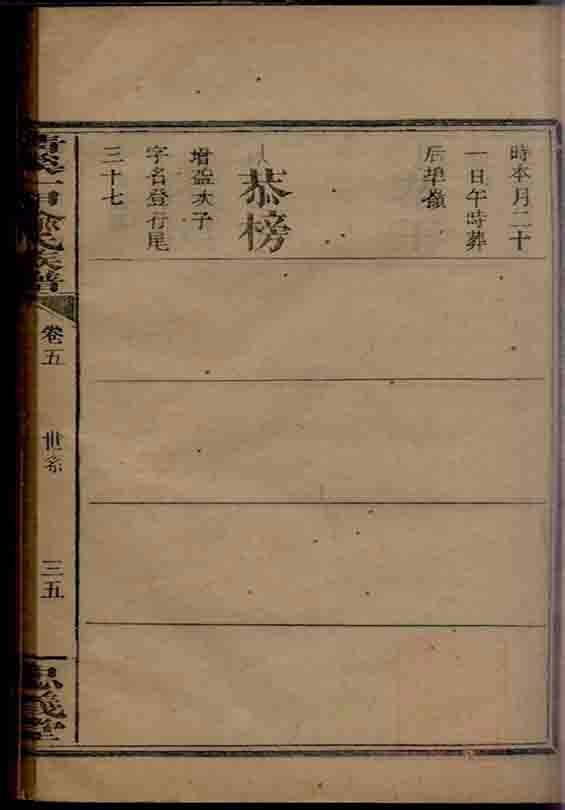 時本月二十
一日午時葬
后塅嶺
恭榜
增益次子
字名登行尾
三十七
徐氏族譜
卷五
世系
三五
忠義堂